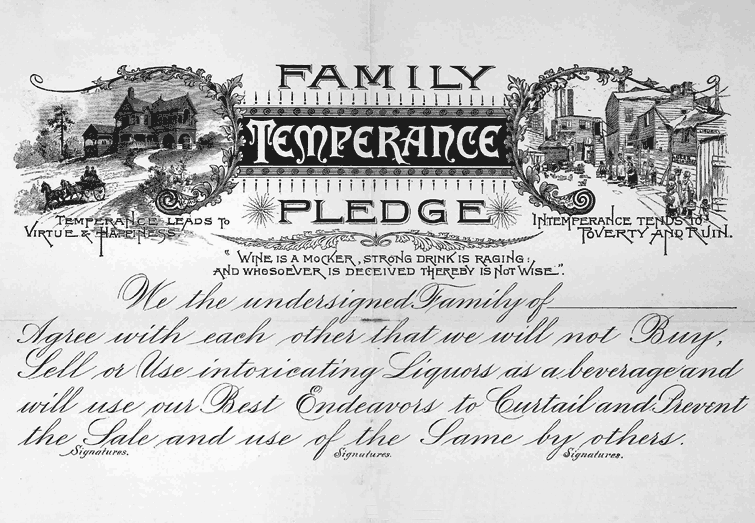 FAMILY
TEMPERANCE
PLEDGE
TEMPERANCE LEADS TO
VIRTUE & HAPPINESS.
INTEMPERANCE TENDS TO
POVERTY AND RUIN.
"WINE IS A MOCKER, STRONG DRINK IS RAGING:
AND WHOSOEVER IS DECEIVED THEREBY IS NOT WISE".
We the undersigned Family of
Agree with each other that we will not Buy,
Sell or Use intoxicating Liquors as a beverage and
will use our Best Endeavors to Curtail and Prevent
the Sale and use of the Same by others.
Signatures. Signatures. Signatures.